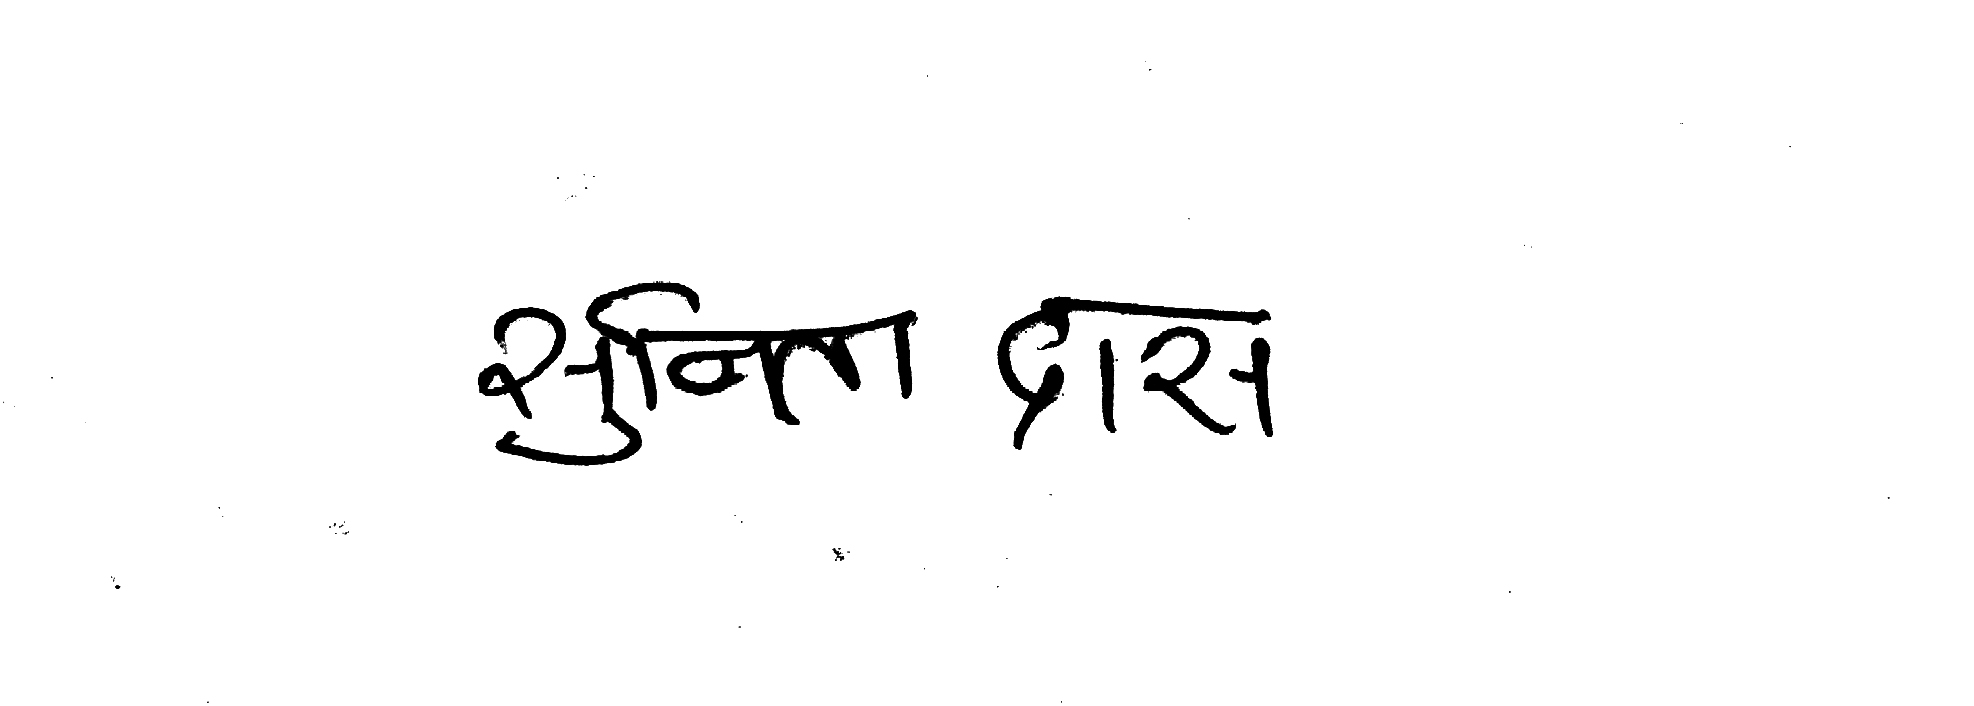 सुनिल दास